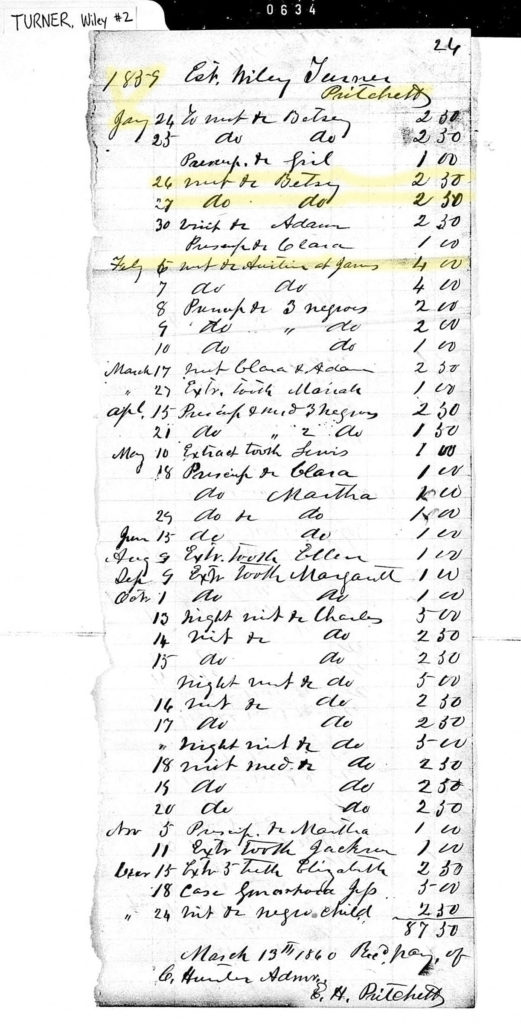 0634
TURNER, Wiley #2
24
1859 Est. Wiley Turner
Pritchett
Jany 24 To visit &c Betsey 2 50
25 do do 2 50
Prescrip. &c Girl 1 00
26 visit &c Betsey 2 50
27 do do 2 50
30 visit &c Adam 2 50
Prescrip &c Clara 1 00
Feby 6 visit &c Austin at Jams 4 00
7 do do 4 00
8 Prescrip &c 3 negroes 2 00
9 do " do 2 00
10 do do 1 00
March 17 visit Clara & Adam 2 50
" 27 Extr. tooth Mariah 1 00
Apl. 15 Prescrip & med 3 negroes 2 50
21 do " 2 do 1 50
May 10 Extract tooth Lewis 1 00
18 Prescrip &c Clara 1 00
do Martha 1 00
29 do &c do 1 00
June 15 do do 1 00
Aug 9 Extr. tooth Ellen 1 00
Sep 9 Extr tooth Margarett 1 00
Octr. 1 do do 1 00
13 Night visit &c Charles 5 00
14 visit &c do 2 50
15 do do 2 50
Night visit &c do 5 00
16 visit &c do 2 50
17 do do 2 50
" Night visit &c do 5 00
18 visit med. &c do 2 50
19 do do 2 50
20 do do 2 50
Nov 5 Prescrip. &c Martha 1 00
11 Extr tooth Jackson 1 00
15 Extr 5 teeth Elizabeth 2 50
18 Case 5 00
" 24 visit &c negro child 2 50
87 50
March 13th 1860 Recd. pay. of
C. Hunter Admr.
E. H. Pritchett